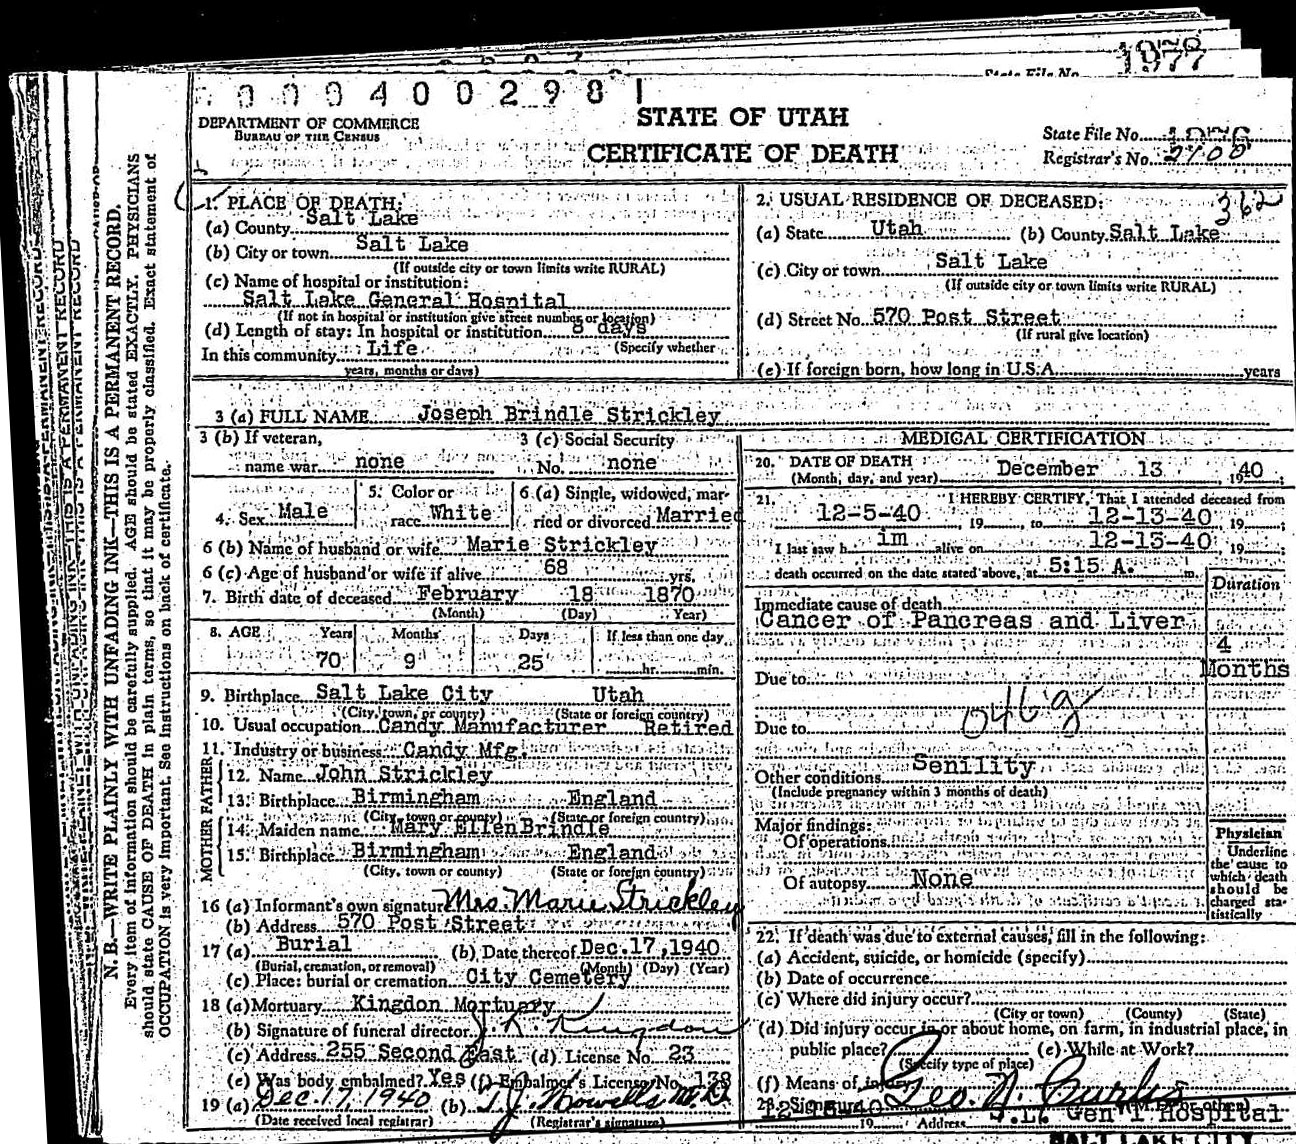 1977
State File No.
0 0 0 4 0 0 2 9 8 1
DEPARTMENT OF COMMERCE
BUREAU OF THE CENSUS
STATE OF UTAH
CERTIFICATE OF DEATH
State File No. 1976
Registrar's No. 2700
362
1. PLACE OF DEATH:
(a) County Salt Lake
(b) City or town Salt Lake
(If outside city or town limits write RURAL)
(c) Name of hospital or institution:
Salt Lake General Hospital
(If not in hospital or institution give street number or location)
(d) Length of stay: In hospital or institution 8 days
(Specify whether
In this community Life
years, months or days)
2. USUAL RESIDENCE OF DECEASED:
(a) State Utah (b) County Salt Lake
(c) City or town Salt Lake
(If outside city or town limits write RURAL)
(d) Street No. 570 Post Street
(If rural give location)
(e) If foreign born, how long in U.S.A. years
3 (a) FULL NAME Joseph Brindle Strickley
3 (b) If veteran, 3 (c) Social Security
name war none No. none
4. Sex Male 5. Color or race White 6 (a) Single, widowed, married or divorced Married
6 (b) Name of husband or wife Marie Strickley
6 (c) Age of husband or wife if alive 68 yrs.
7. Birth date of deceased February 18 1870
(Month) (Day) Year)
8. AGE Years Months Days If less than one day
70 9 25 hr. min.
9. Birthplace Salt Lake City Utah
(City, town, or county) (State or foreign country)
10. Usual occupation Candy Manufacturer Retired
11. Industry or business Candy Mfg.
FATHER
12. Name John Strickley
13. Birthplace Birmingham England
(City, town or county) (State or foreign country)
MOTHER
14. Maiden name Mary Ellen Brindle
15. Birthplace Birmingham England
(City, town or county) (State or foreign country)
16 (a) Informant's own signature Mrs. Marie Strickley
(b) Address 570 Post Street
17 (a) Burial (b) Date thereof Dec. 17, 1940
(Burial, cremation, or removal) (Month) (Day) (Year)
(c) Place: burial or cremation City Cemetery
18 (a) Mortuary Kingdon Mortuary
(b) Signature of funeral director J. K. Kingdon
(c) Address 255 Second East (d) License No. 23
(e) Was body embalmed? Yes (f) Embalmer's License No. 138
19 (a) Dec. 17, 1940 (b) T. J. Howells M.D.
(Date received local registrar) (Registrar's signature)
MEDICAL CERTIFICATION
20. DATE OF DEATH December 13 1940
(Month, day, and year)
21. I HEREBY CERTIFY, That I attended deceased from
12-5-40, 19 , to 12-13-40, 19 ;
I last saw h im alive on 12-13-40, 19 ;
death occurred on the date stated above, at 5:15 A. m.
Duration
Immediate cause of death
Cancer of Pancreas and Liver
4
Months
Due to
046g
Due to
Other conditions Senility
(Include pregnancy within 3 months of death)
Major findings:
Of operations
Of autopsy None
Physician
Underline
the cause to
which death
should be
charged sta-
tistically
22. If death was due to external causes, fill in the following:
(a) Accident, suicide, or homicide (specify)
(b) Date of occurrence
(c) Where did injury occur?
(City or town) (County) (State)
(d) Did injury occur in or about home, on farm, in industrial place, in
public place? (e) While at Work?
(Specify type of place)
(f) Means of injury
23. Signature Geo. N. Curtis
19 Address S.L. Gen'l Hospital
SALT LAKE CITY
N. B.—WRITE PLAINLY WITH UNFADING INK—THIS IS A PERMANENT RECORD.
Every item of information should be carefully supplied. AGE should be stated EXACTLY. PHYSICIANS
should state CAUSE OF DEATH in plain terms, so that it may be properly classified. Exact statement of
OCCUPATION is very important. See instructions on back of certificate.